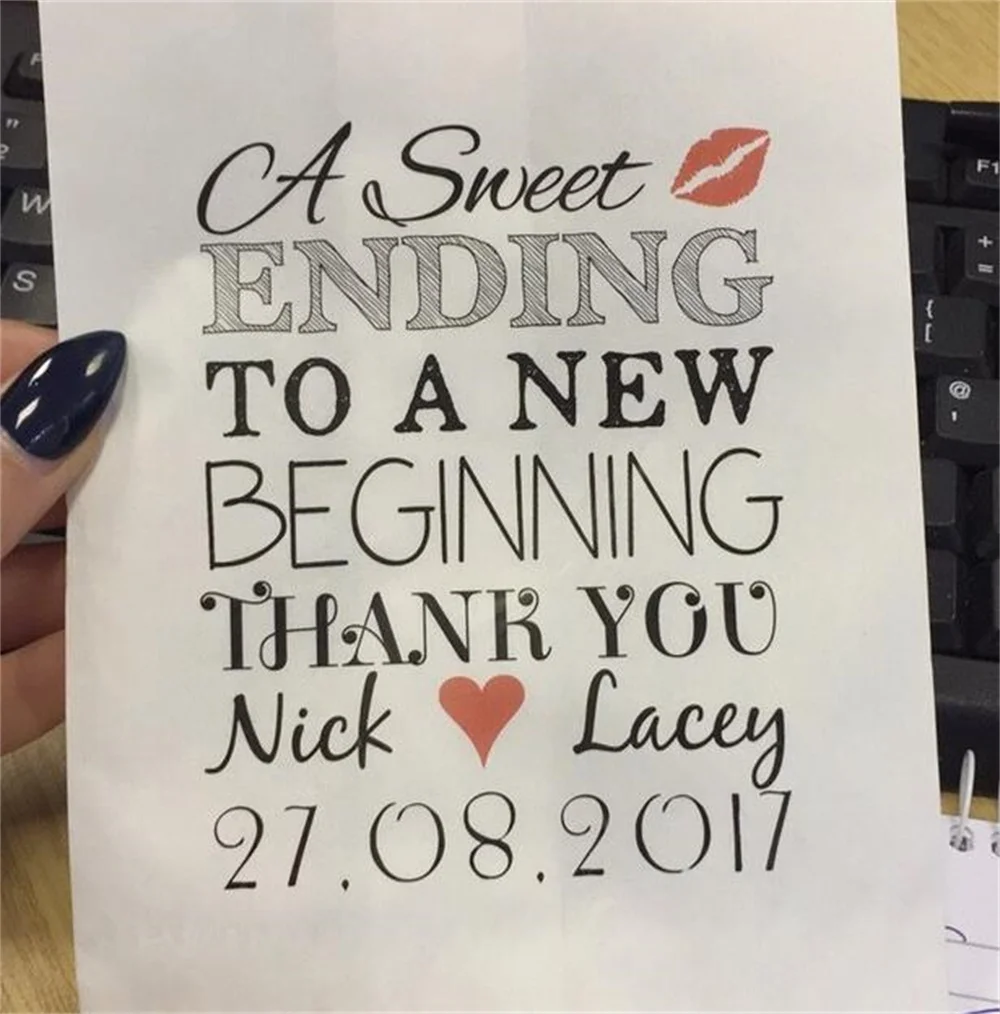 A Sweet
ENDING
TO A NEW
BEGINNING
THANK YOU
Nick Lacey
27.08.2017
"
2
W
S
F1
+
=
{
[
@
'